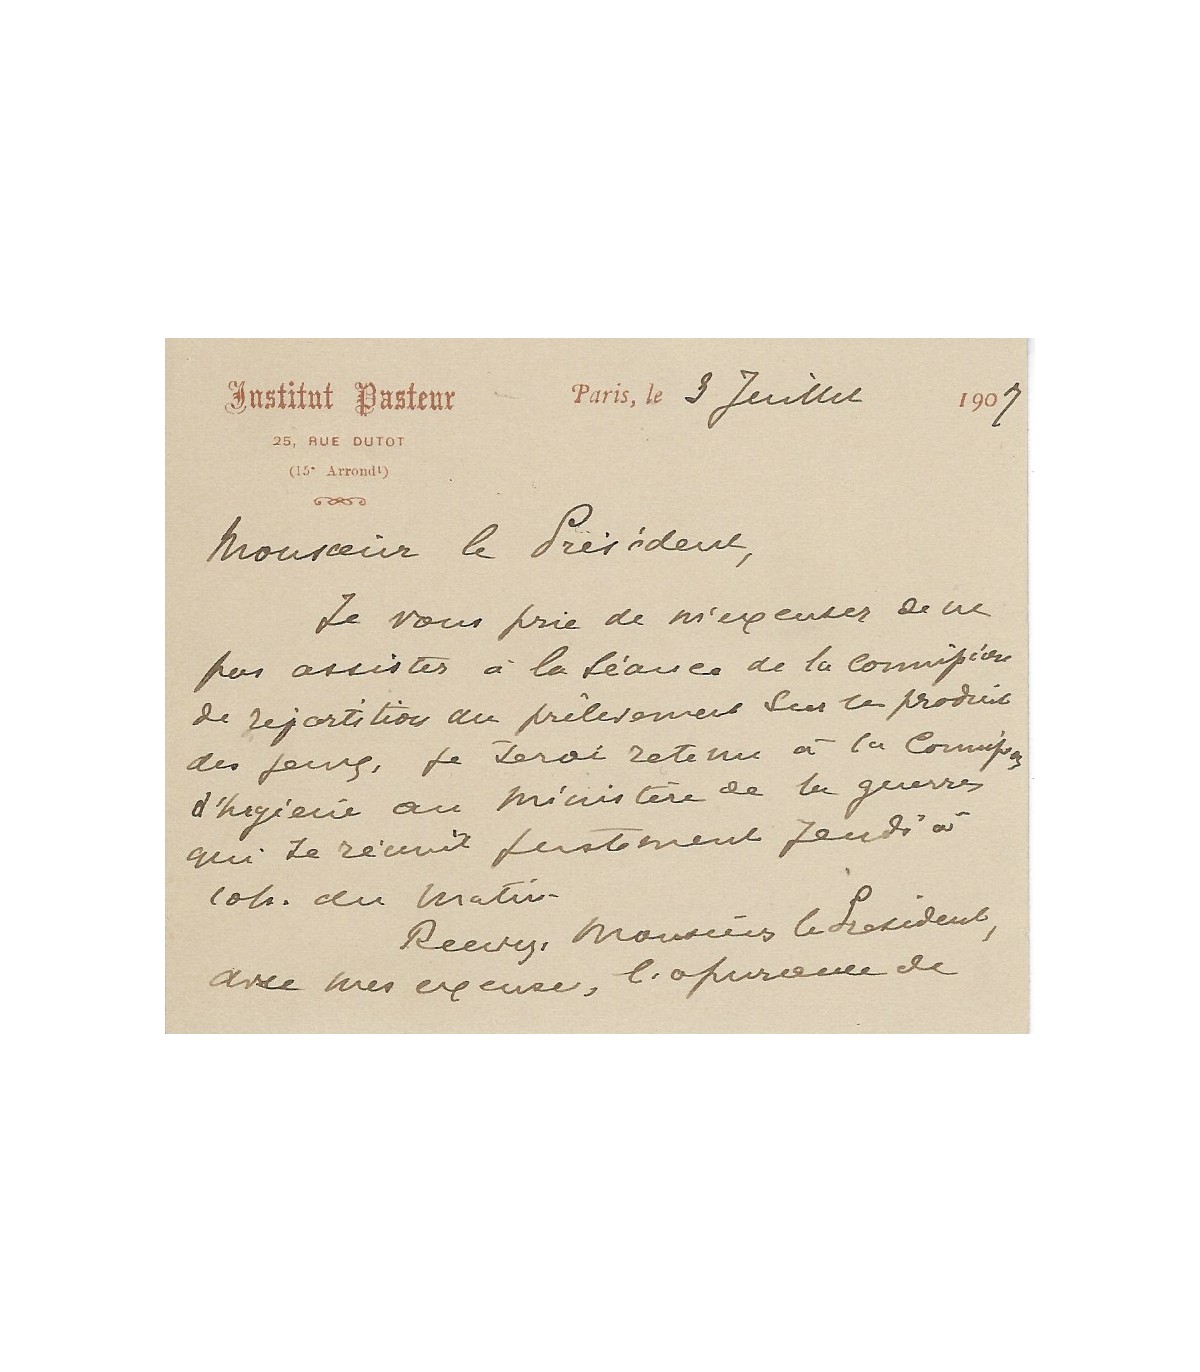 Institut Pasteur
25, RUE DUTOT
(15e Arrondt)
Paris, le 3 Juillet 1907
Monsieur le Président,
Je vous prie de m'excuser de ne
pas assister à la séance de la Commission
de répartition du prélèvement sur le produit
des jeux. Je serai retenu à la Commission
d'hygiène au Ministère de la guerre
qui se réunit justement Jeudi à
10h. du matin
Recevez, Monsieur le Président,
avec mes excuses, l'assurance de